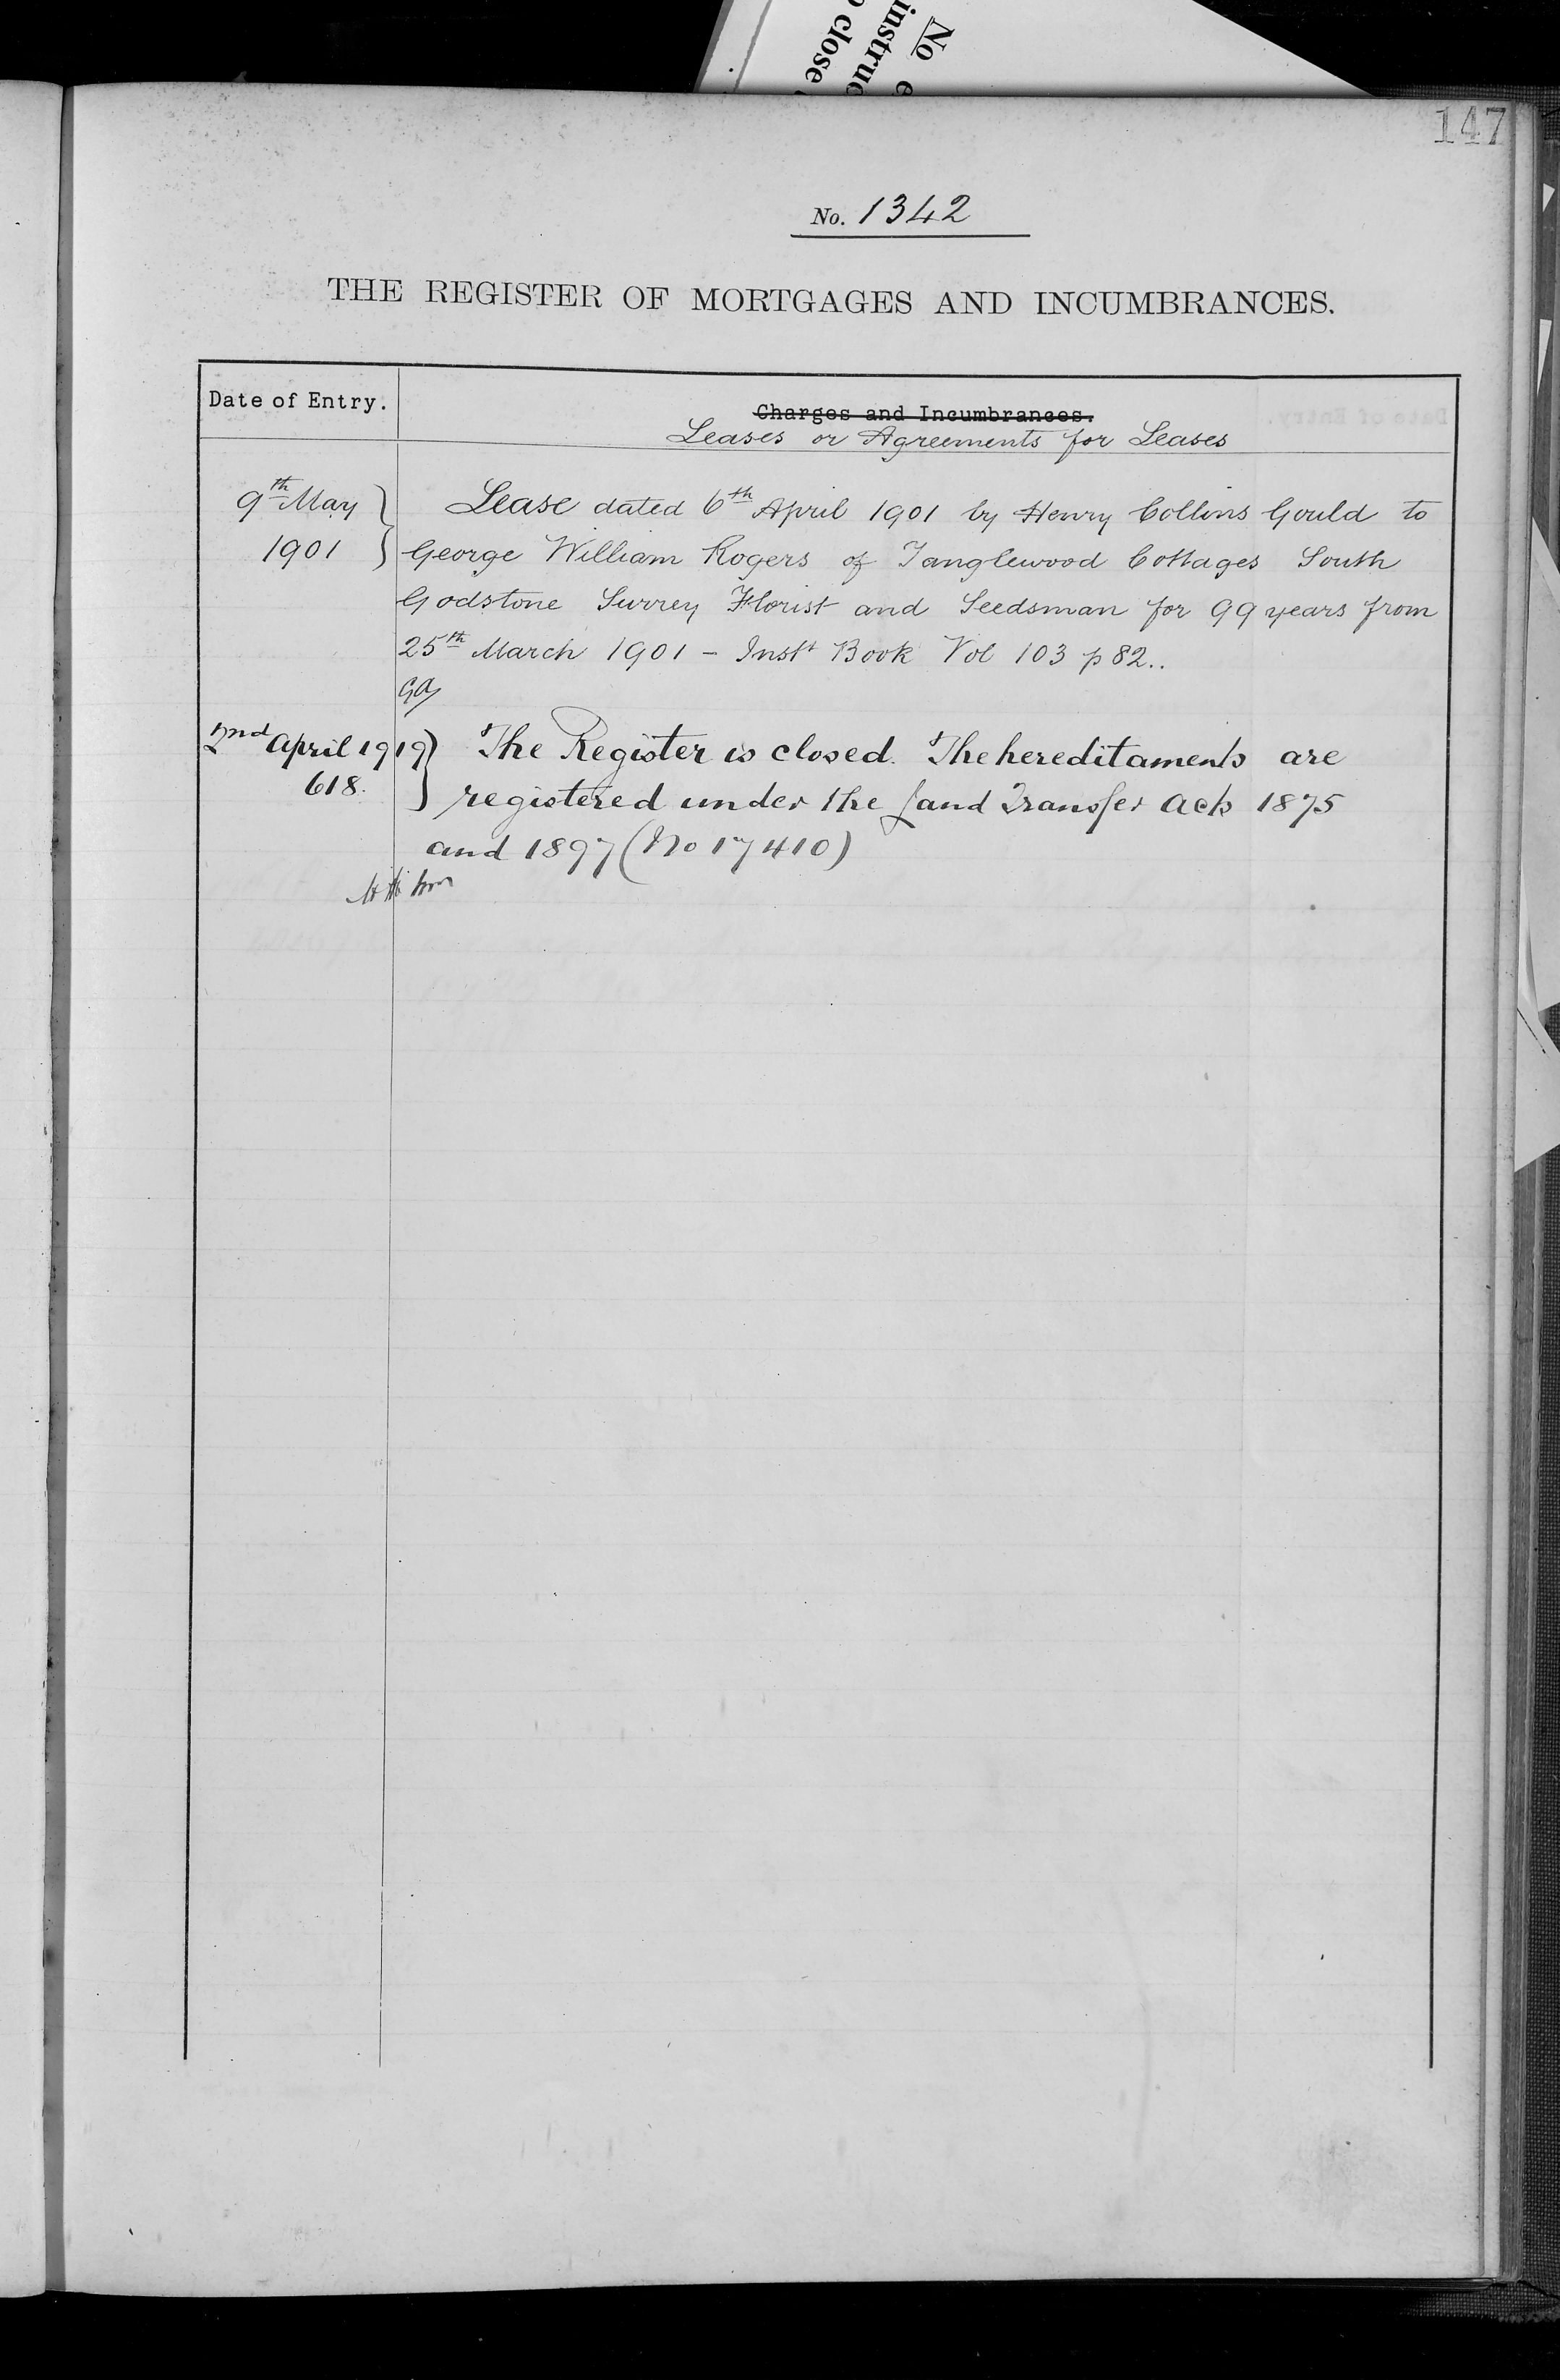 No
instruc
close
147
No. 1342
THE REGISTER OF MORTGAGES AND INCUMBRANCES.
Date of Entry.
Charges and Incumbrances.
Leases or Agreements for Leases
9th May
1901
Lease dated 6th April 1901 by Henry Collins Gould to
George William Rogers of Tanglewood Cottages South
Godstone Surrey Florist and Seedsman for 99 years from
25th March 1901 - Inst Book Vol 103 p 82..
2nd April 1919
618.
The Register is closed. The hereditaments are
registered under the Land Transfer Acts 1875
and 1897 (No 17410)